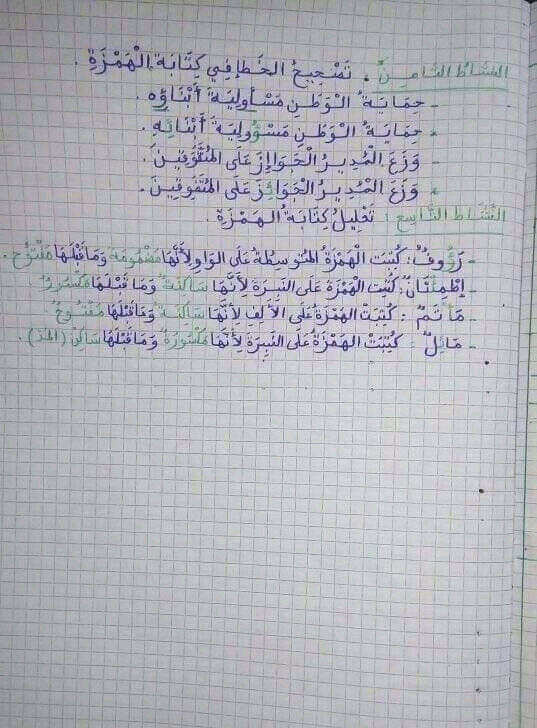 النشاط الثامن : تصحيح الخطإ في كِتَابَةِ الْهَمْزَةِ .
- حِمَايَةُ الْوَطَنِ مَسْأولِيَةُ أَبْنَاؤِه .
* حِمَايَةُ الْوَطَنِ مَسْؤُولِيَةُ أَبْنَائِهِ .
- وَزَعَ الْمُدِيرُ الْجَوَاإِزَ عَلَى الْمُتَفَوِقِينَ .
* وَزَعَ الْمُدِيرُ الْجَوَائِزَ عَلَى الْمُتَفَوِقِينَ .
النَّشَاطُ التَّاسِع : تَعْلِيلُ كِتَابَةُ الْهَمْزَةِ .
- رَؤُوفٌ : كُتِبَتِ الْهَمْزَةُ الْمُتَوَسِطَةُ عَلَى الْوَاوِ لِأَنَّهَا مَضْمُومَة وَمَا قَبْلَهَا مَفْتُوح .
- إِطْمِئْنَان : كُتِبَتِ الْهَمْزَةُ عَلَى النَّبِرَةِ لِأَنَّهَا سَاكِنَةٌ وَمَا قَبْلَهَا مَكْسُورٌ
- مَأْتَمٌ : كُتِبَتِ الْهَمْزَةُ عَلَى الْأَلِفِ لِأَنَّهَا سَاكِنَةٌ وَمَا قَبْلَهَا مَفْتُوحٌ
- مَائِلٌ : كُتِبَتِ الْهَمْزَةُ عَلَى النَّبِرَةِ لِأَنَّهَا مَكْسُورَةٌ وَمَا قَبْلَهَا سَاكِن (المَدّ) .